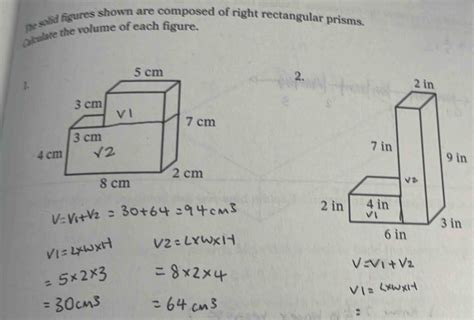 The solid figures shown are composed of right rectangular prisms.
Calculate the volume of each figure.
1.
5 cm
3 cm
V1
7 cm
3 cm
V2
4 cm
2 cm
8 cm
V=V1+V2 = 30+64=94cm3
V1=LXWXH
= 5x2x3
=30cm3
V2=LXWXH
= 8x2x4
= 64 cm3
2.
2 in
7 in
9 in
V2
2 in
4 in
V1
3 in
6 in
V=V1+V2
V1= LXWXH
=